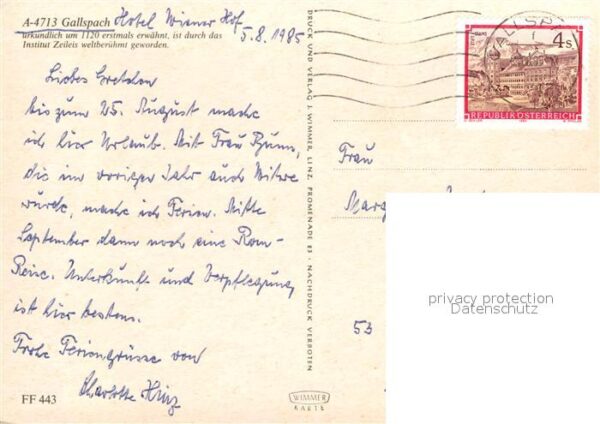 A-4713 Gallspach Hotel Wiener Hof
5.8.1985
urkundlich um 1120 erstmals erwähnt, ist durch das
Institut Zeileis weltberühmt geworden.
Liebes Gretchen
bis zum 25. August mache
ich hier Urlaub. Mit Frau
die im vorigen Jahr auch Witwe
wurde, mache ich Ferien. Mitte
September dann noch eine Rom-
Reise. Unterkunft und Verpflegung
ist hier bestens.
Frohe Feriengrüsse von
Charlotte Hinz
FF 443
DRUCK UND VERLAG J. WIMMER, LINZ, PROMENADE 23 · NACHDRUCK VERBOTEN
WIMMER
KARTE
GALLSP
4 S
REPUBLIK ÖSTERREICH
Frau
Marg
privacy protection
Datenschutz
53